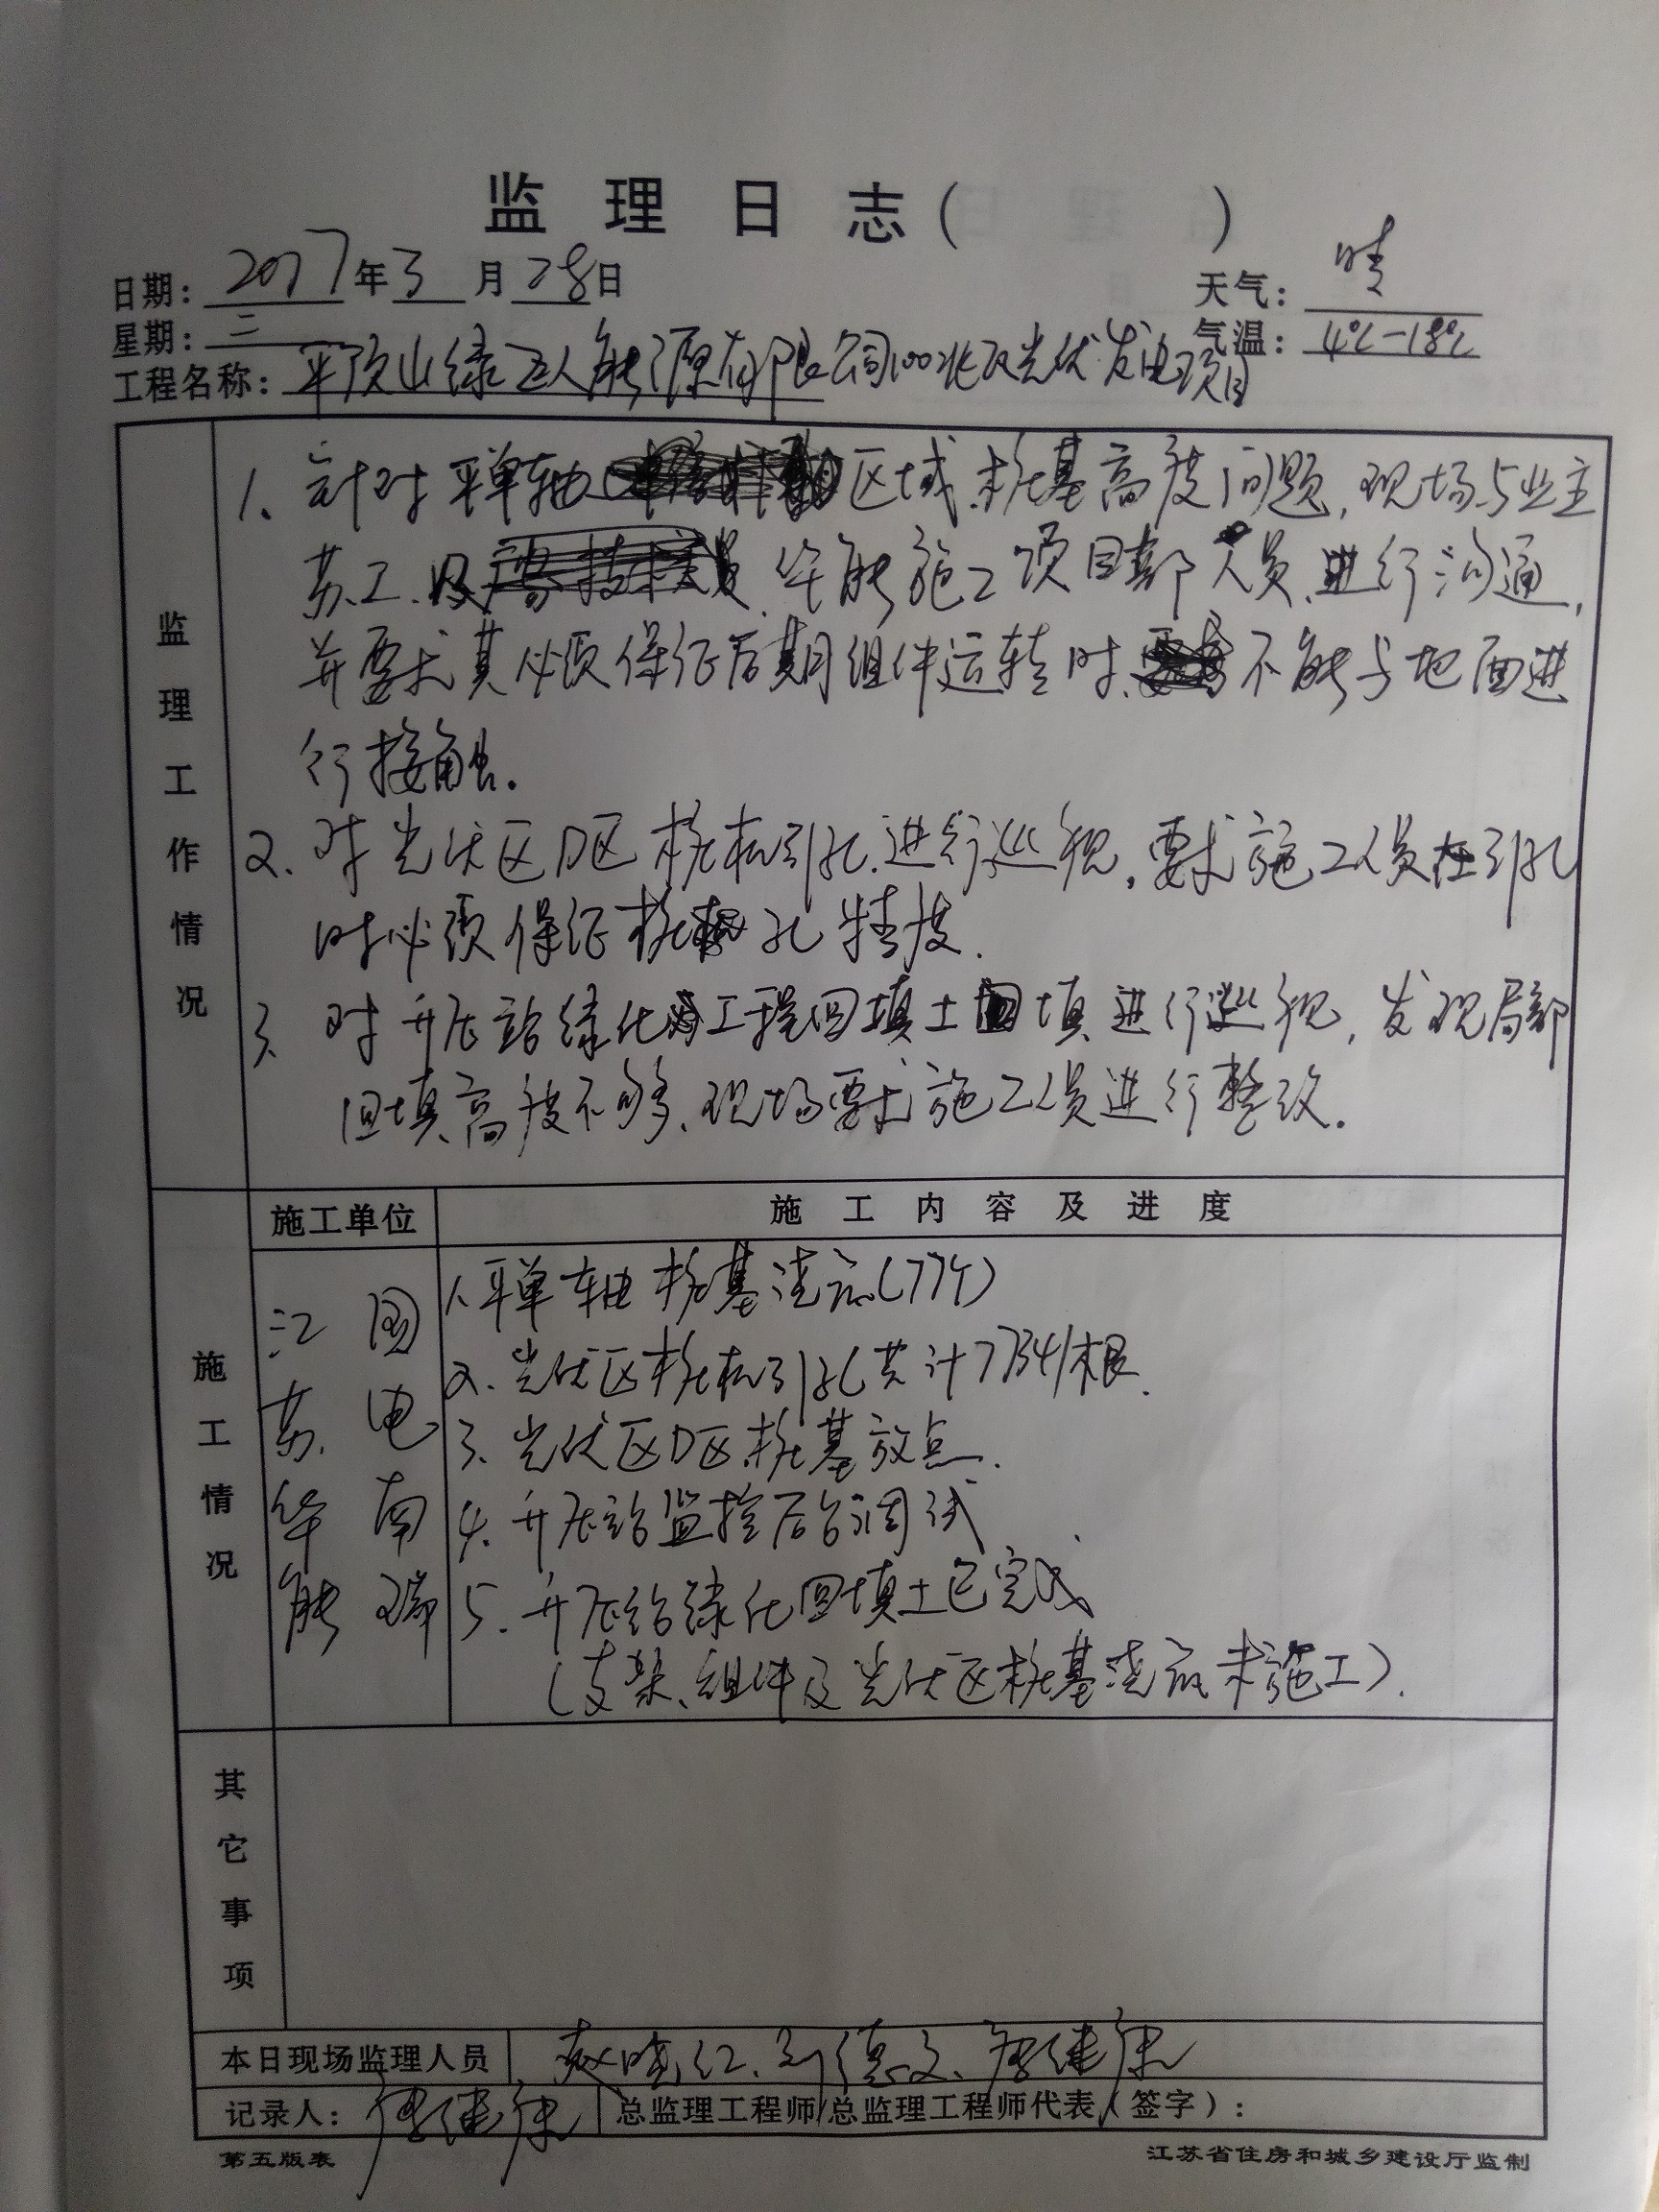 监理日志( )
日期: 2017年3月28日
天气: 晴
星期: 二
气温: 4℃-18℃
工程名称: 平顶山绿巨人能源有限公司100兆瓦光伏发电项目
监理工作情况
1、针对平单轴区域桩基高度问题,现场与业主
苏工、及华能施工项目部人员进行沟通,
并要求其必须保证后期组件运转时、不能与地面进
行接触。
2、对光伏区D区桩机引孔进行巡视,要求施工人员在引孔
时必须保证桩孔精度.
3、对升压站绿化工程回填土回填进行巡视,发现局部
回填高度不够、现场要求施工人员进行整改。
施工单位
施工内容及进度
施工情况
江苏华能
国电南瑞
1、平单轴桩基浇筑(77个)
2、光伏区桩机引孔共计7734根.
3、光伏区D区桩基放点.
4、升压站监控后台调试
5、升压站绿化回填土已完成
(支架、组件及光伏区桩基浇筑未施工).
其它事项
本日现场监理人员 赵晓红、刘德文、唐继康
记录人: 唐继康 总监理工程师/总监理工程师代表(签字):
第五版表
江苏省住房和城乡建设厅监制